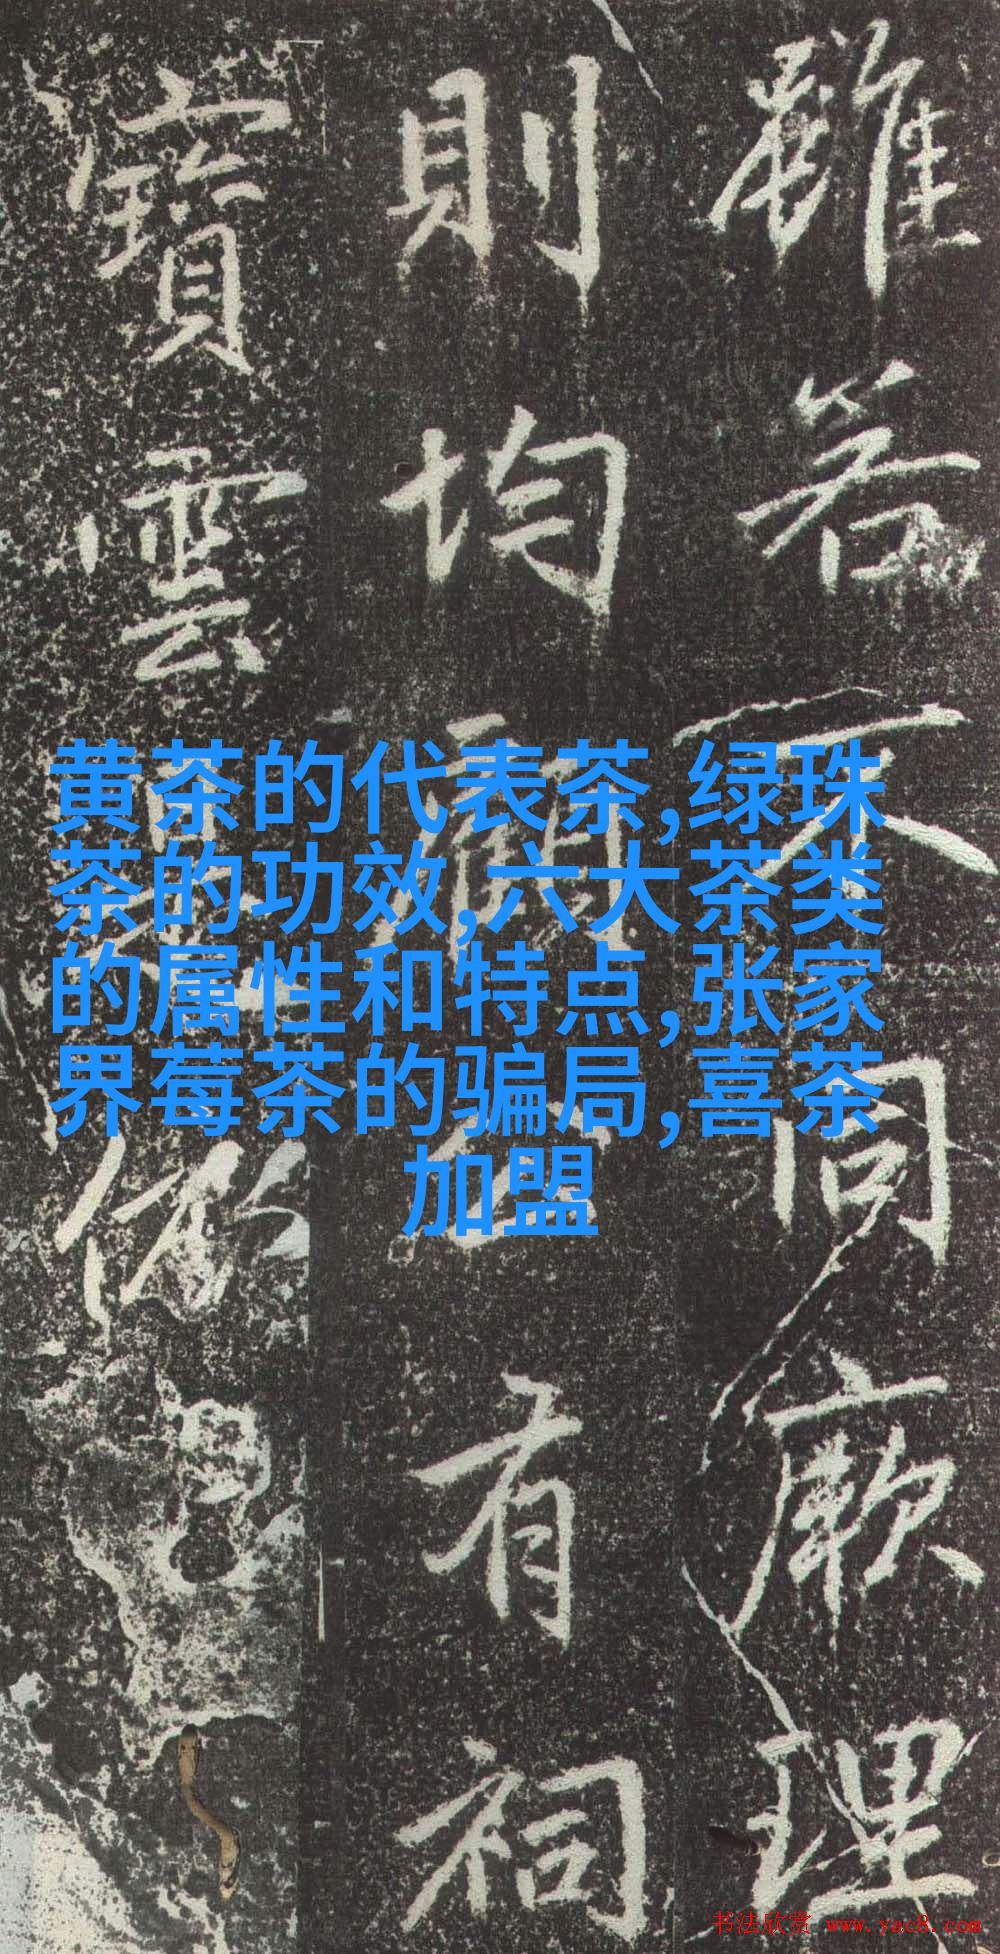 雖若不同厥理
則均顧
有祠
寶雲
黄茶的代表茶,绿珠
茶的功效,六大茶类
的属性和特点,张家
界莓茶的骗局,喜茶
加盟
书法欣赏 www.yac8.com